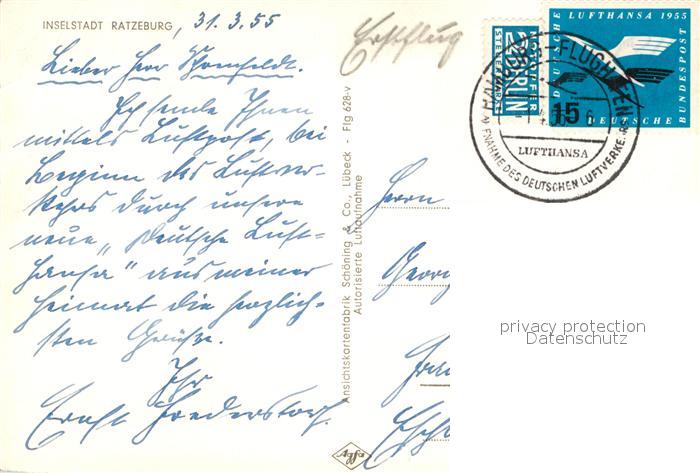 INSELSTADT RATZEBURG, 31.3.55
Lieber Herr
Ich sende Ihnen
mittels Luftpost, bei
Beginn des Luftver-
kehrs durch unsere
neue „Deutsche Luft=
hansa" aus meiner
Heimat die herzlich-
sten Grüße.
Ihr
Ernst
Ansichtskartenfabrik Schöning & Co., Lübeck - Flg 628-v
Autorisierte Luftaufnahme
Agfa
Erstflug
NOTOPFER
2 BERLIN
STEUERMARKE
DEUTSCHE LUFTHANSA 1955
DEUTSCHE BUNDESPOST
15
HAMBURG - FLUGHAFEN
LUFTHANSA
AUFNAHME DES DEUTSCHEN LUFTVERKEHRS
Herrn
Georg
privacy protection
Datenschutz